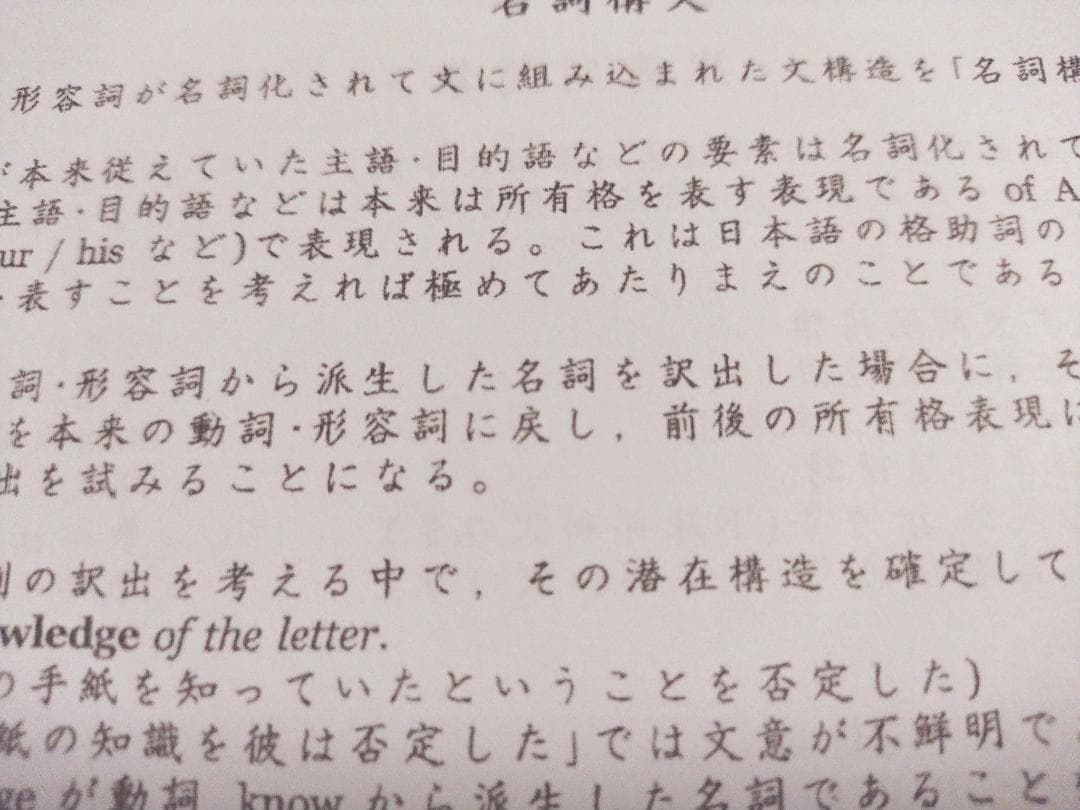 名詞構文
形容詞が名詞化されて文に組み込まれた文構造を「名詞構
が本来従えていた主語・目的語などの要素は名詞化されて
主語・目的語などは本来は所有格を表す表現である of A
ur / his など)で表現される。これは日本語の格助詞の
表すことを考えれば極めてあたりまえのことである
詞・形容詞から派生した名詞を訳出した場合に，そ
を本来の動詞・形容詞に戻し，前後の所有格表現に
出を試みることになる。
の訳出を考える中で，その潜在構造を確定して
wledge of the letter.
の手紙を知っていたということを否定した)
紙の知識を彼は否定した」では文意が不鮮明で
ge が動詞 know から派生した名詞であること